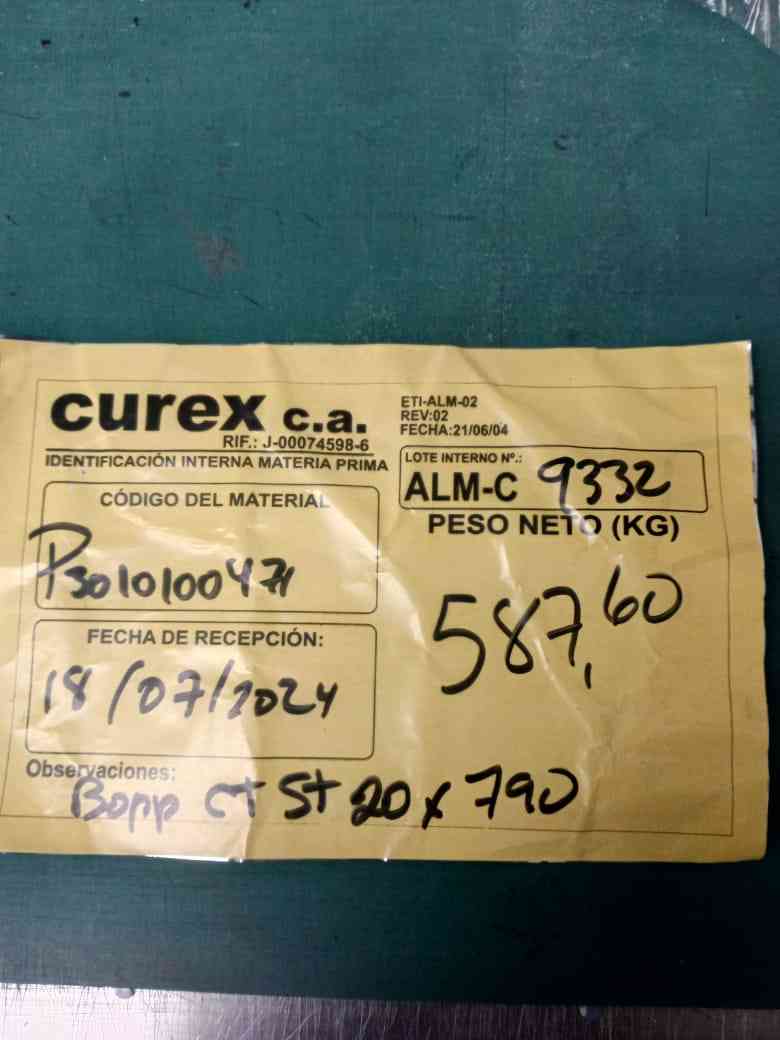 curex c.a.
RIF.: J-00074598-6
IDENTIFICACIÓN INTERNA MATERIA PRIMA
ETI-ALM-02
REV:02
FECHA:21/06/04
LOTE INTERNO Nº.:
ALM-C 9332
CÓDIGO DEL MATERIAL
P3010100471
PESO NETO (KG)
587,60
FECHA DE RECEPCIÓN:
18/07/2024
Observaciones:
Bopp CT ST 20 x 790